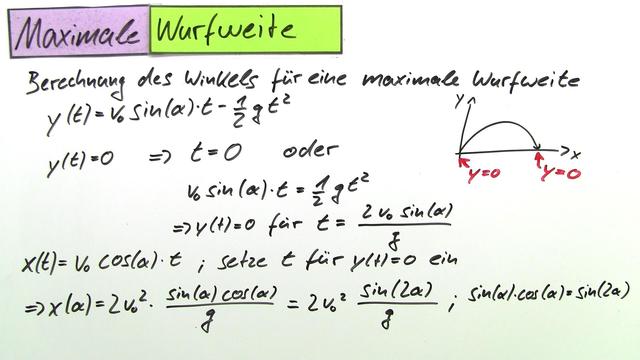 Maximale Wurfweite
Berechnung des Winkels für eine maximale Wurfweite
y(t)=v₀ sin(α)·t-½gt²
y(t)=0 => t=0 oder
v₀ sin(α)·t=½gt²
=>y(t)=0 für t= 2v₀ sin(α)/g
x(t)=v₀ cos(α)·t ; setze t für y(t)=0 ein
=>x(α)=2v₀²· sin(α)cos(α)/g = 2v₀² sin(2α)/g ; sin(α)·cos(α)=sin(2α)
y
x
y=0
y=0